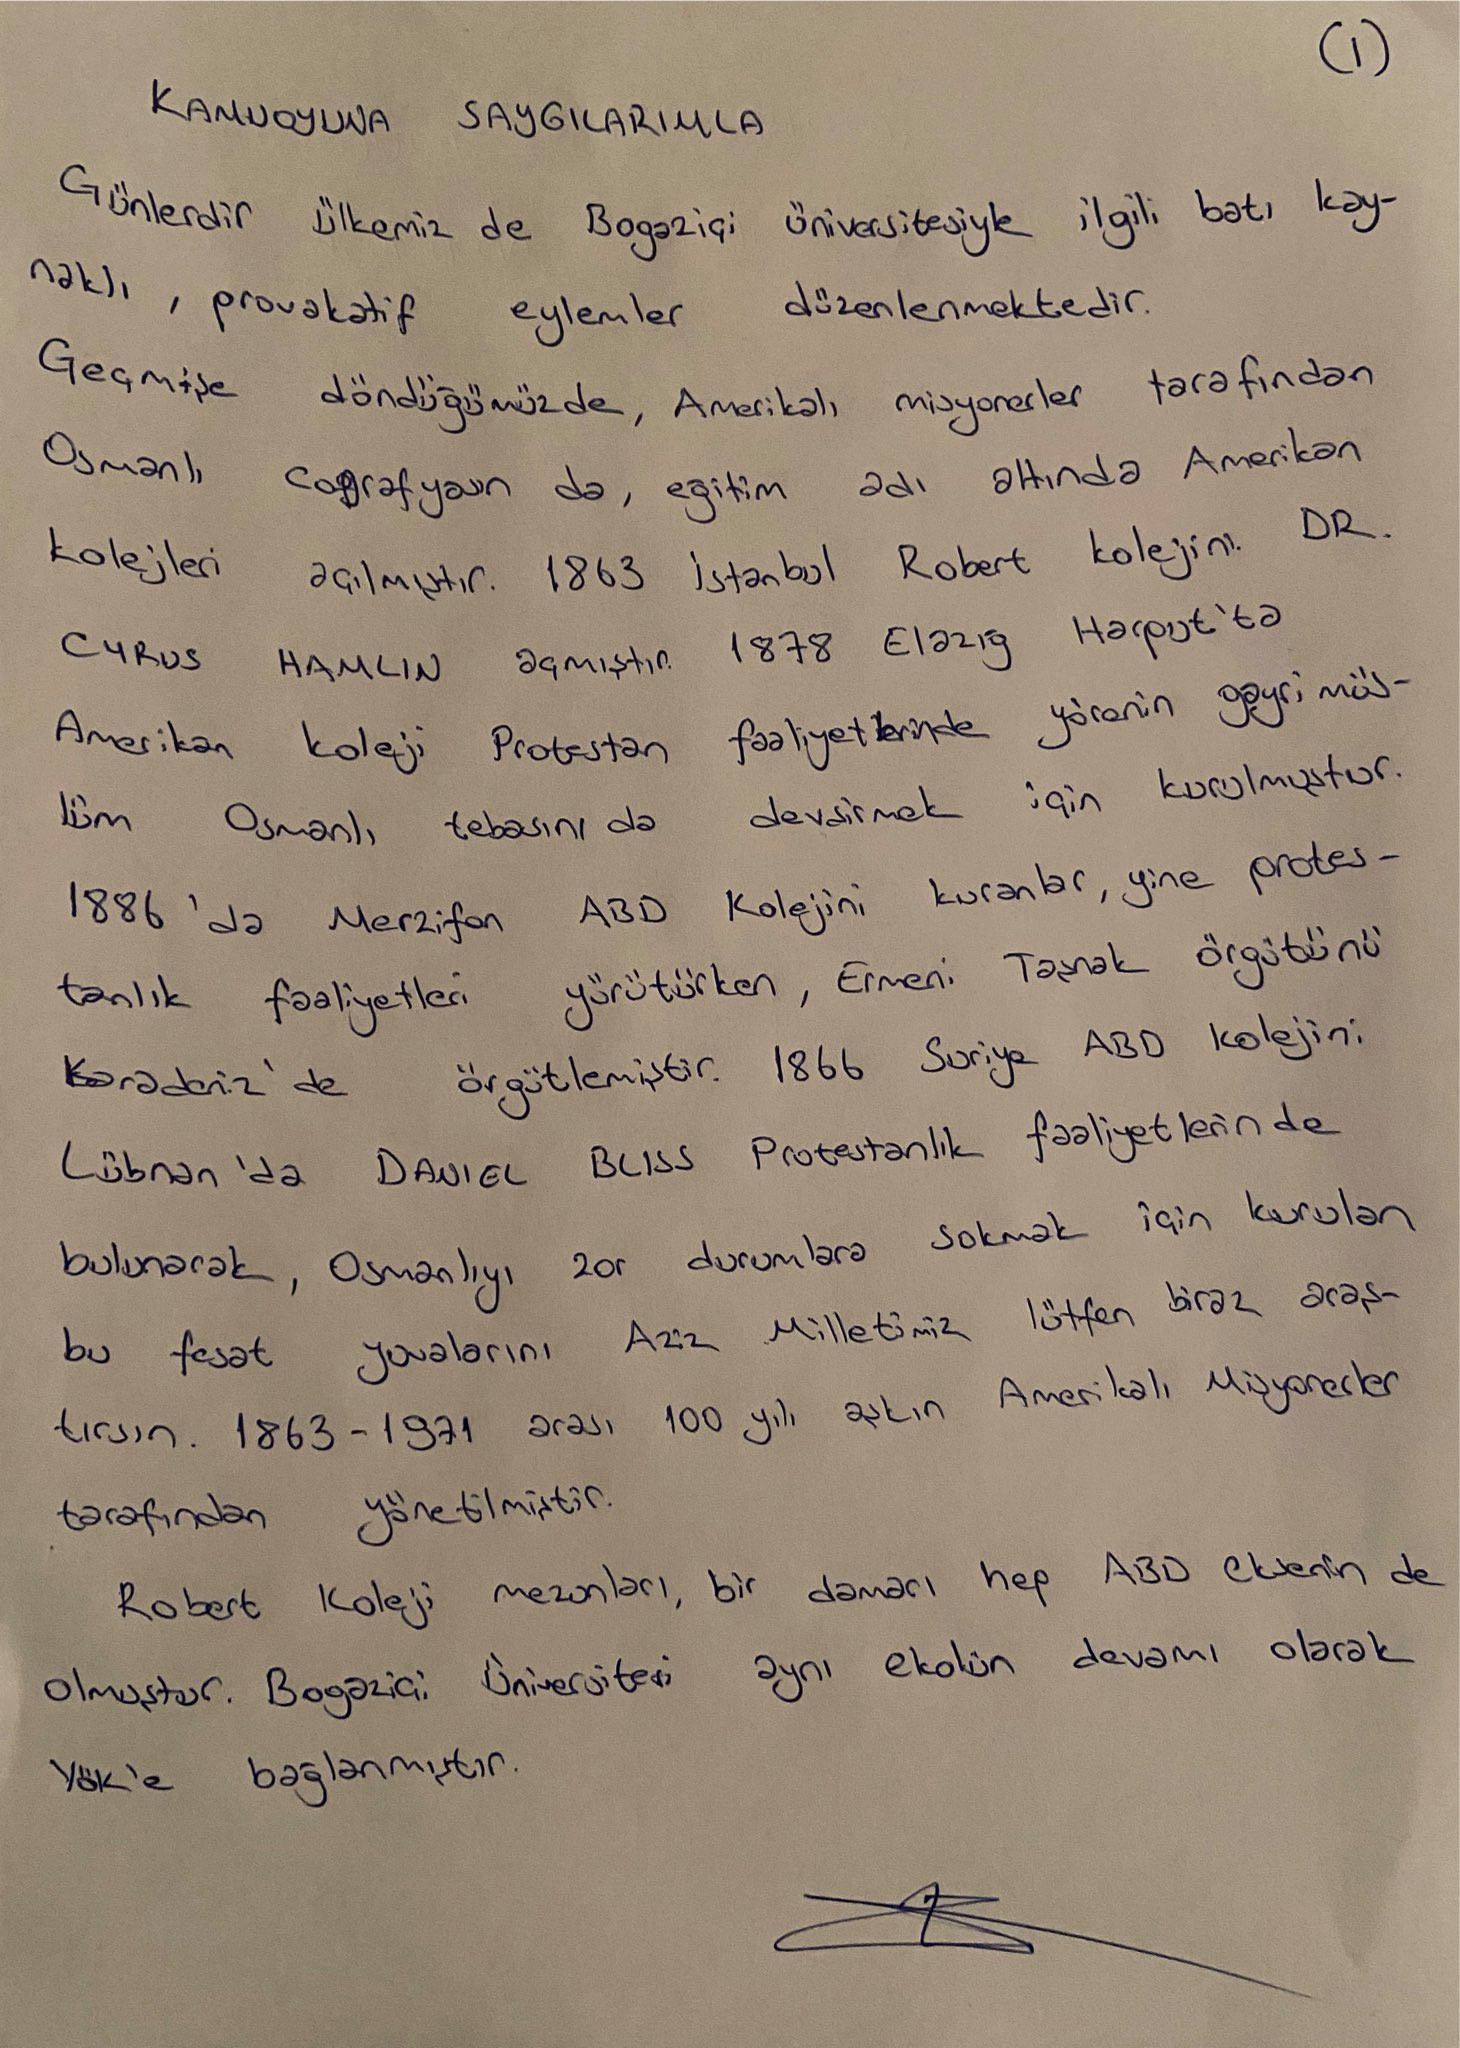 (1)
KAMUOYUNA SAYGILARIMLA
Günlerdir ülkemiz de Bogaziçi üniversitesiyle ilgili batı kay-
naklı, provakatif eylemler düzenlenmektedir.
Geçmişe döndüğümüzde, Amerikalı misyonerler tarafından
Osmanlı coğrafyasın da, eğitim adı altında Amerikan
kolejleri açılmıştır. 1863 İstanbul Robert kolejini DR.
CYRUS HAMLIN açmıştır. 1878 Elazığ Harput'ta
Amerikan koleji Protestan faaliyetlerinde yörenin gayri müs-
lüm Osmanlı tebasını da devsirmek için kurulmuştur.
1886'da Merzifon ABD Kolejini kuranlar, yine protes-
tanlık faaliyetleri yürütürken, Ermeni Taşnak örgütünü
Karadeniz'de örgütlemiştir. 1866 Suriye ABD kolejini
Lübnan'da DANIEL BLISS Protestanlık faaliyetlerin de
bulunarak, Osmanlıyı zor durumlara sokmak için kurulan
bu fesat yuvalarını Aziz Milletimiz lütfen biraz araş-
tırsın. 1863-1971 arası 100 yılı aşkın Amerikalı Misyonerler
tarafından yönetilmiştir.
Robert Koleji mezunları, bir damarı hep ABD eksenin de
olmuştur. Bogaziçi Üniversitesi aynı ekolün devamı olarak
YÖK'e bağlanmıştır.